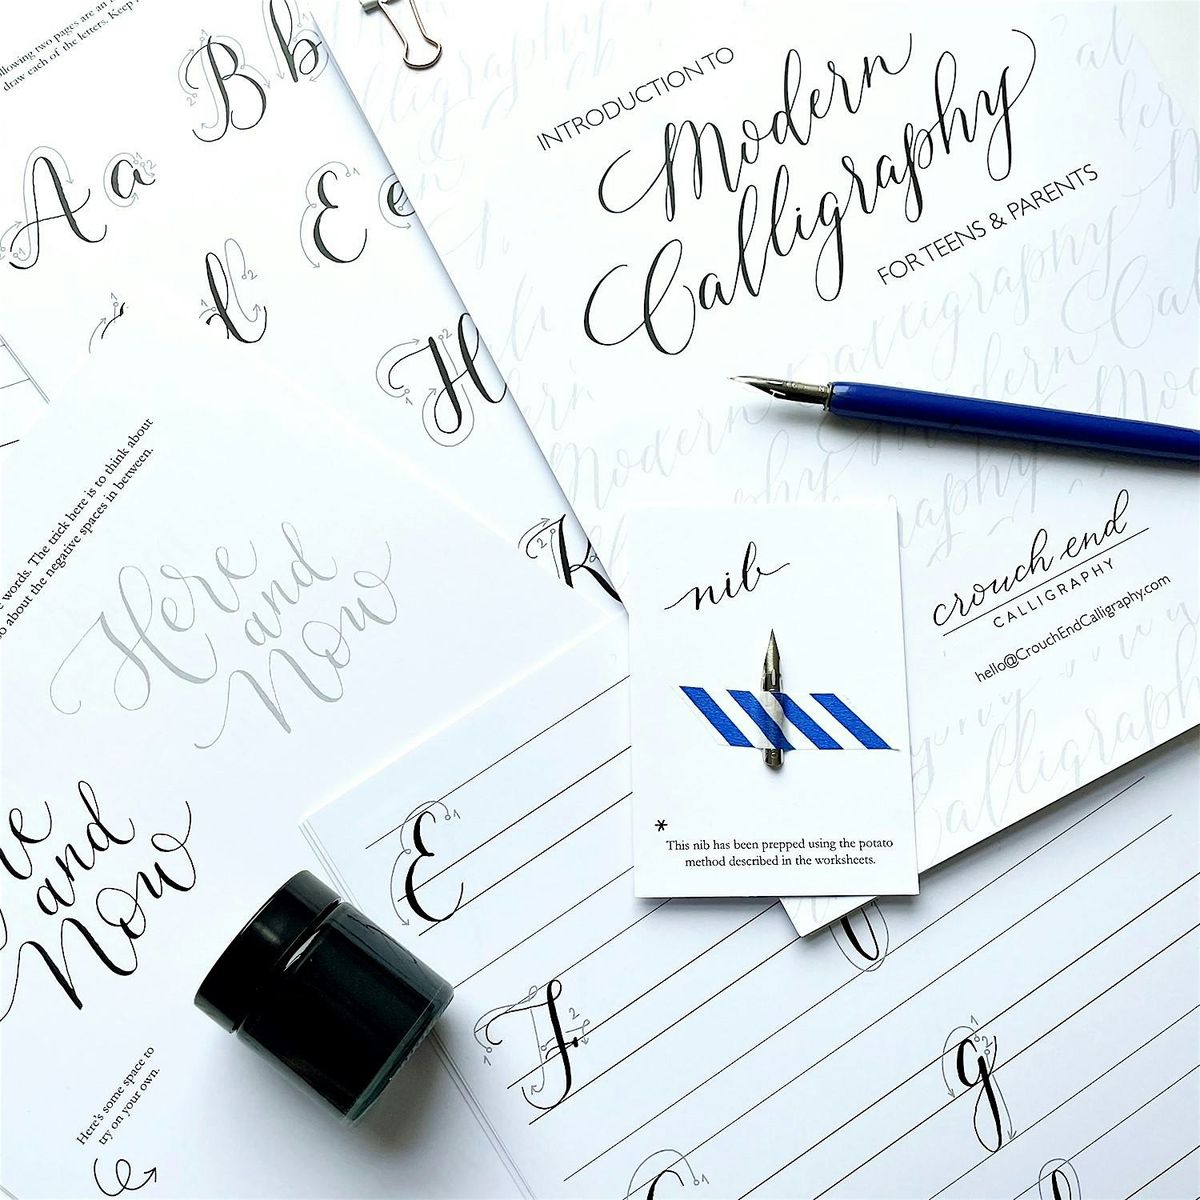 ollowing two pages are an
draw each of the letters. Keep
B b
A a
E e
H
K
INTRODUCTION TO
Modern
Calligraphy
FOR TEENS & PARENTS
words. The trick here is to think about
about the negative spaces in between.
Here
and
Now
and
Now
Here's some space to
try on your own.
nib
*
This nib has been prepped using the potato
method described in the worksheets.
crouch end
CALLIGRAPHY
hello@CrouchEndCalligraphy.com
E
F
g